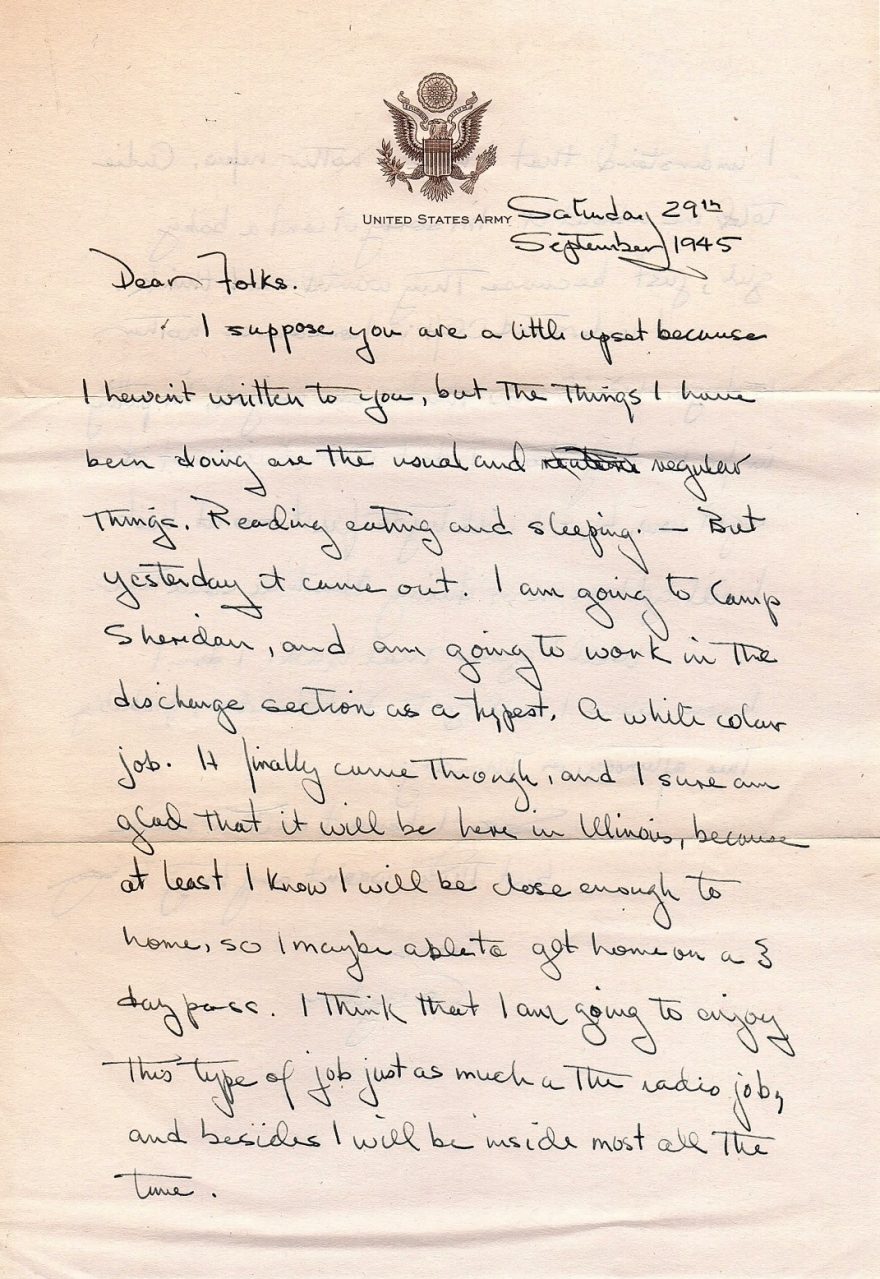 UNITED STATES ARMY
Saturday 29th
September 1945
Dear Folks.
I suppose you are a little upset because
I haven't written to you, but the things I have
been doing are the usual and regular
things. Reading eating and sleeping. — But
yesterday it came out. I am going to Camp
Sheridan, and am going to work in the
discharge section as a typest. A white colar
job. It finally came through, and I sure am
glad that it will be here in Illinois, because
at least I know I will be close enough to
home, so I maybe able to get home on a 3
day pass. I think that I am going to enjoy
this type of job just as much a the radio job,
and besides I will be inside most all the
time.